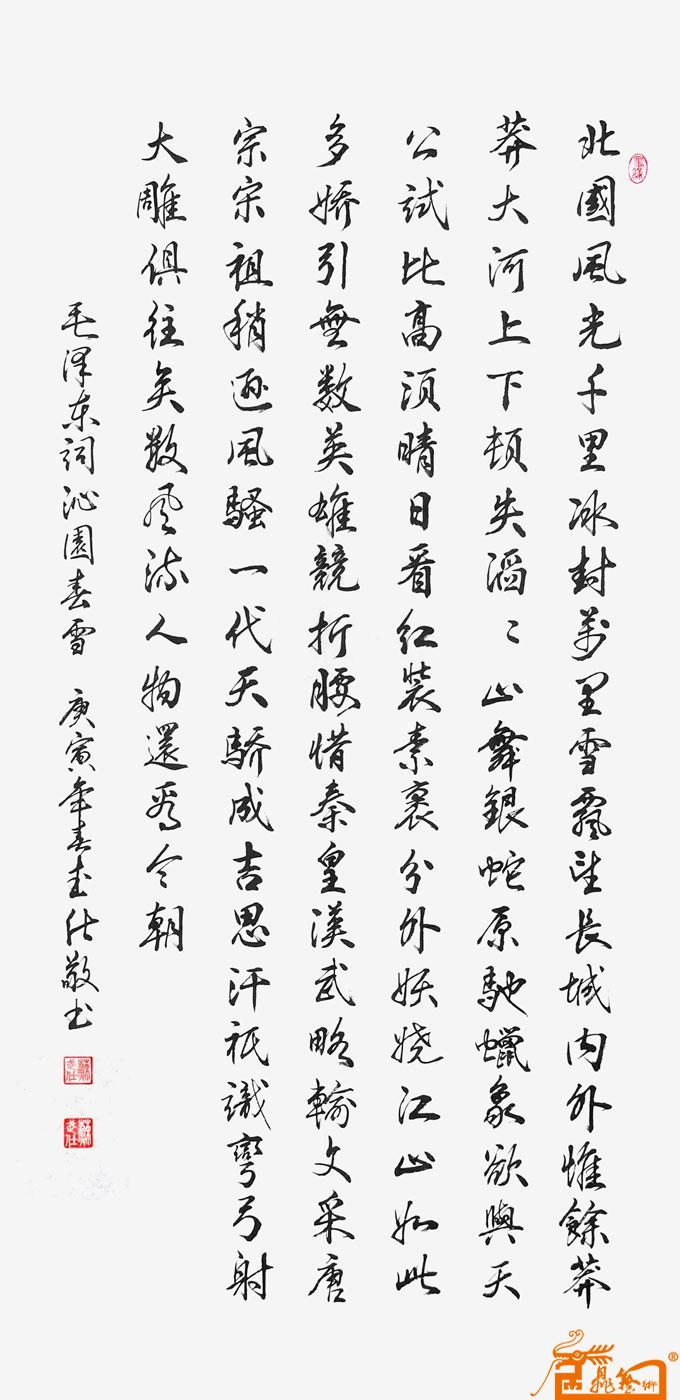 北國風光千里冰封萬里雪飄望長城内外惟餘莽
莽大河上下頓失滔〻山舞銀蛇原馳蠟象欲與天
公試比高須晴日看紅裝素裹分外妖嬈江山如此
多嬌引無數英雄競折腰惜秦皇漢武略輸文采唐
宗宋祖稍遜風騷一代天驕成吉思汗祇識彎弓射
大雕俱往矣數風流人物還看今朝
毛泽东词沁園春雪 庚寅年春武仕敬书